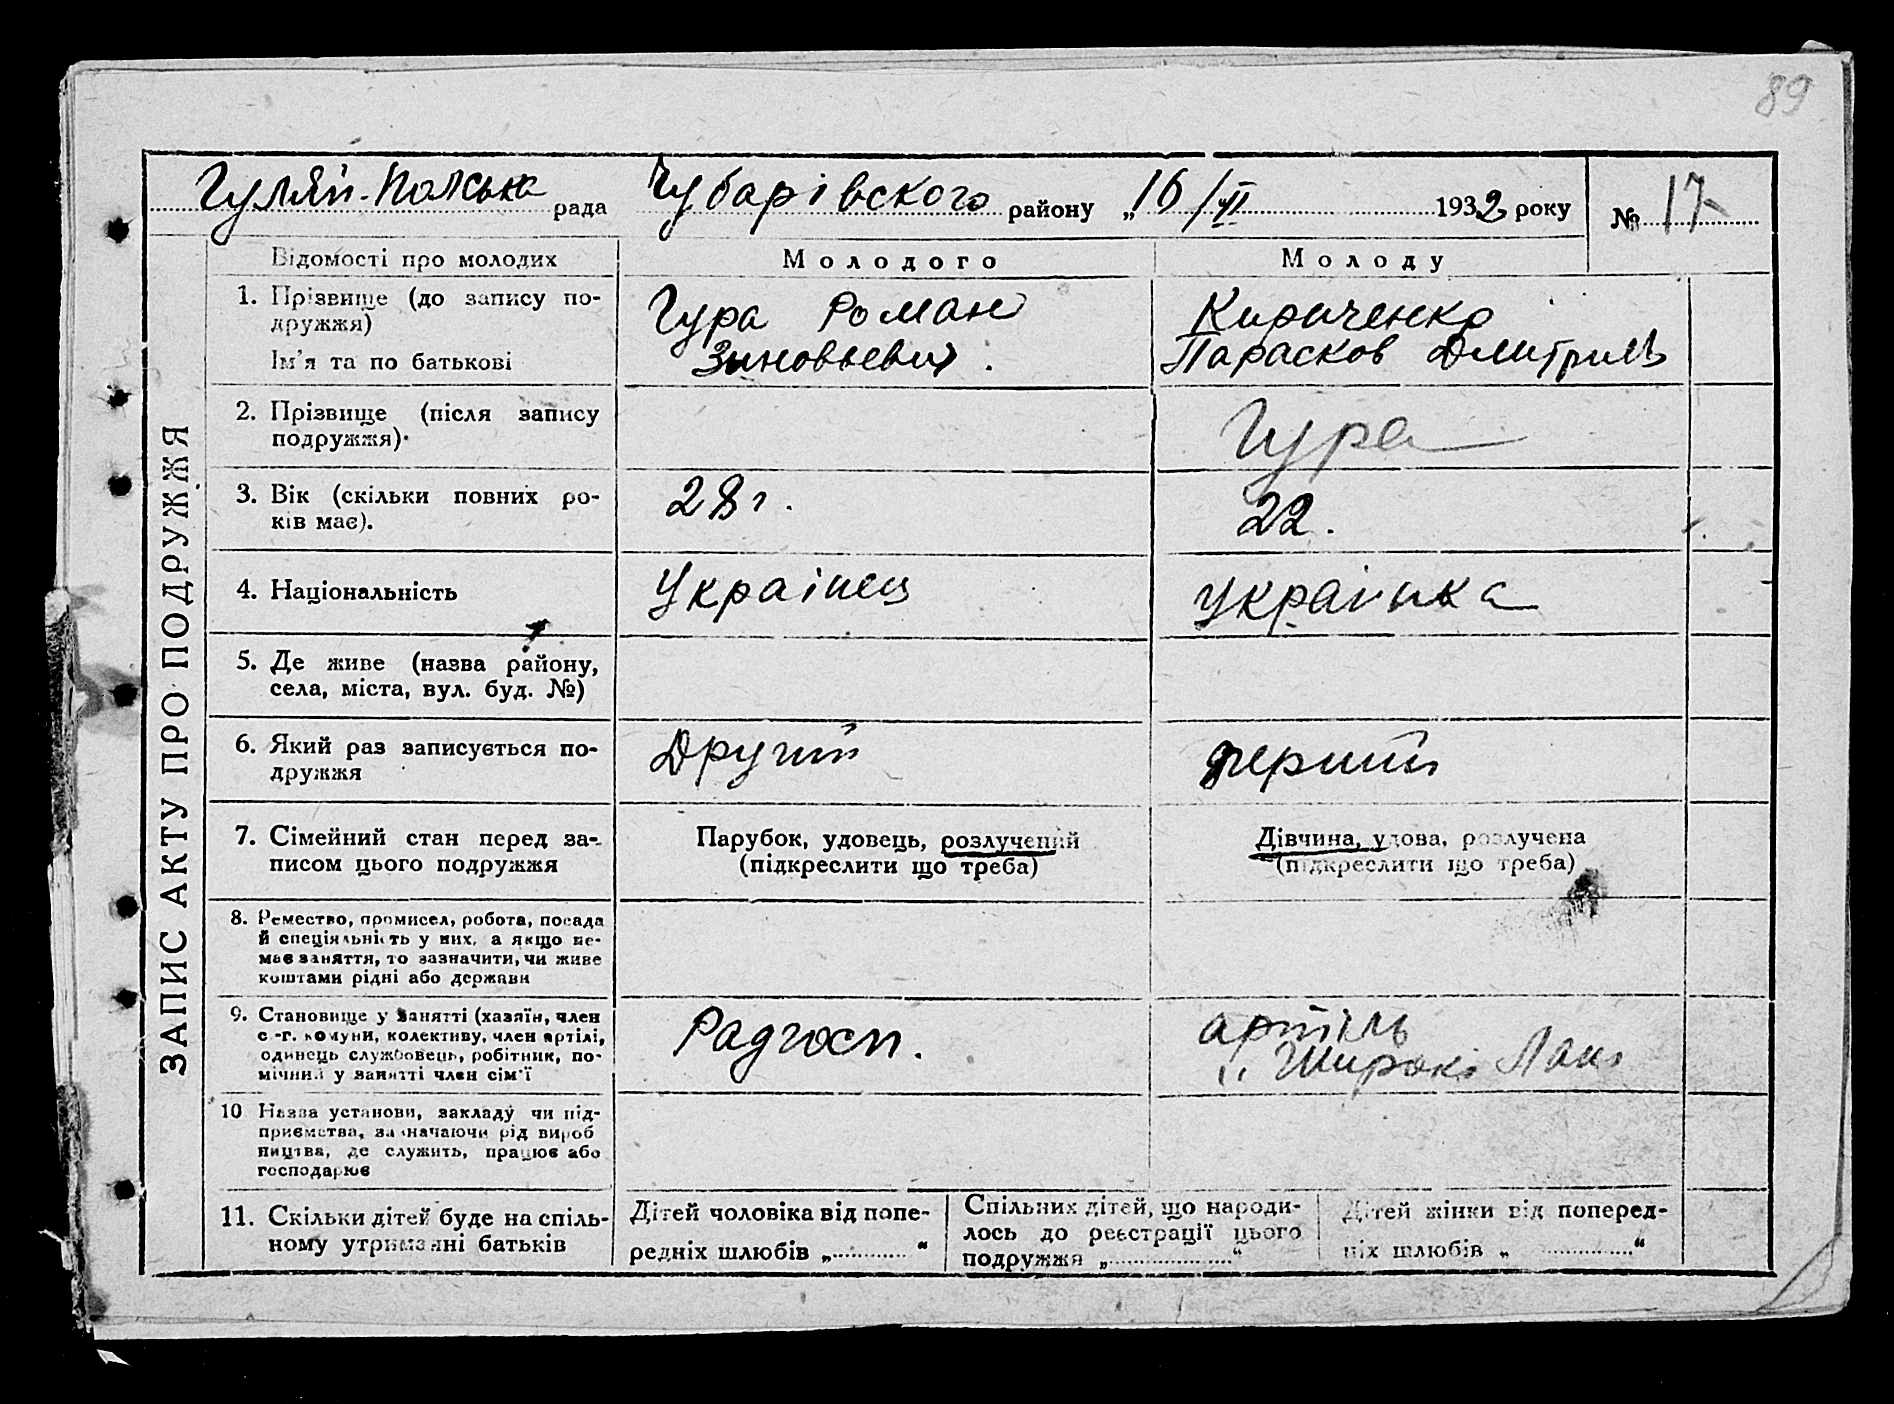 89
Гуляй-Польська рада Чубарівского району „16/VI 1932 року № 17
ЗАПИС АКТУ ПРО ПОДРУЖЖЯ
Відомості про молодих
Молодого
Молоду
1. Прізвище (до запису по-
дружжя)
Ім'я та по батькові
Гура Роман
Зиновьевич.
Кириченко
Парасков Дмитрив
2. Прізвище (після запису
подружжя)
Гура
3. Вік (скільки повних ро-
ків має).
28 г.
22.
4. Національність
Українец
Украінка
5. Де живе (назва району,
села, міста, вул. буд. №)
6. Який раз записується по-
дружжя
Другий
перший
7. Сімейний стан перед за-
писом цього подружжя
Парубок, удовець, розлучений
(підкреслити що треба)
Дівчина, удова, розлучена
(підкреслити що треба)
8. Ремество, промисел, робота, посада
й спеціяльність у них, а якщо не-
має заняття, то зазначити, чи живе
коштами рідні або держави
9. Становище у занятті (хазяїн, член
с.-г. комуни, колективу, член артілі,
одинець службовець, робітник, по-
мічний у занятті член сім'ї
Радгосп.
артіль
„Широкі Лани
10 Назва установи, закладу чи під-
приємства, зазначаючи рід вироб
ництва, де служить, працює або
господарює
11. Скільки дітей буде на спіль-
ному утриманні батьків
Дітей чоловіка від попе-
редніх шлюбів „ “
Спільних дітей, що народи-
лось до реєстрації цього
подружжя „ “
Дітей жінки від поперед-
ніх шлюбів „ “